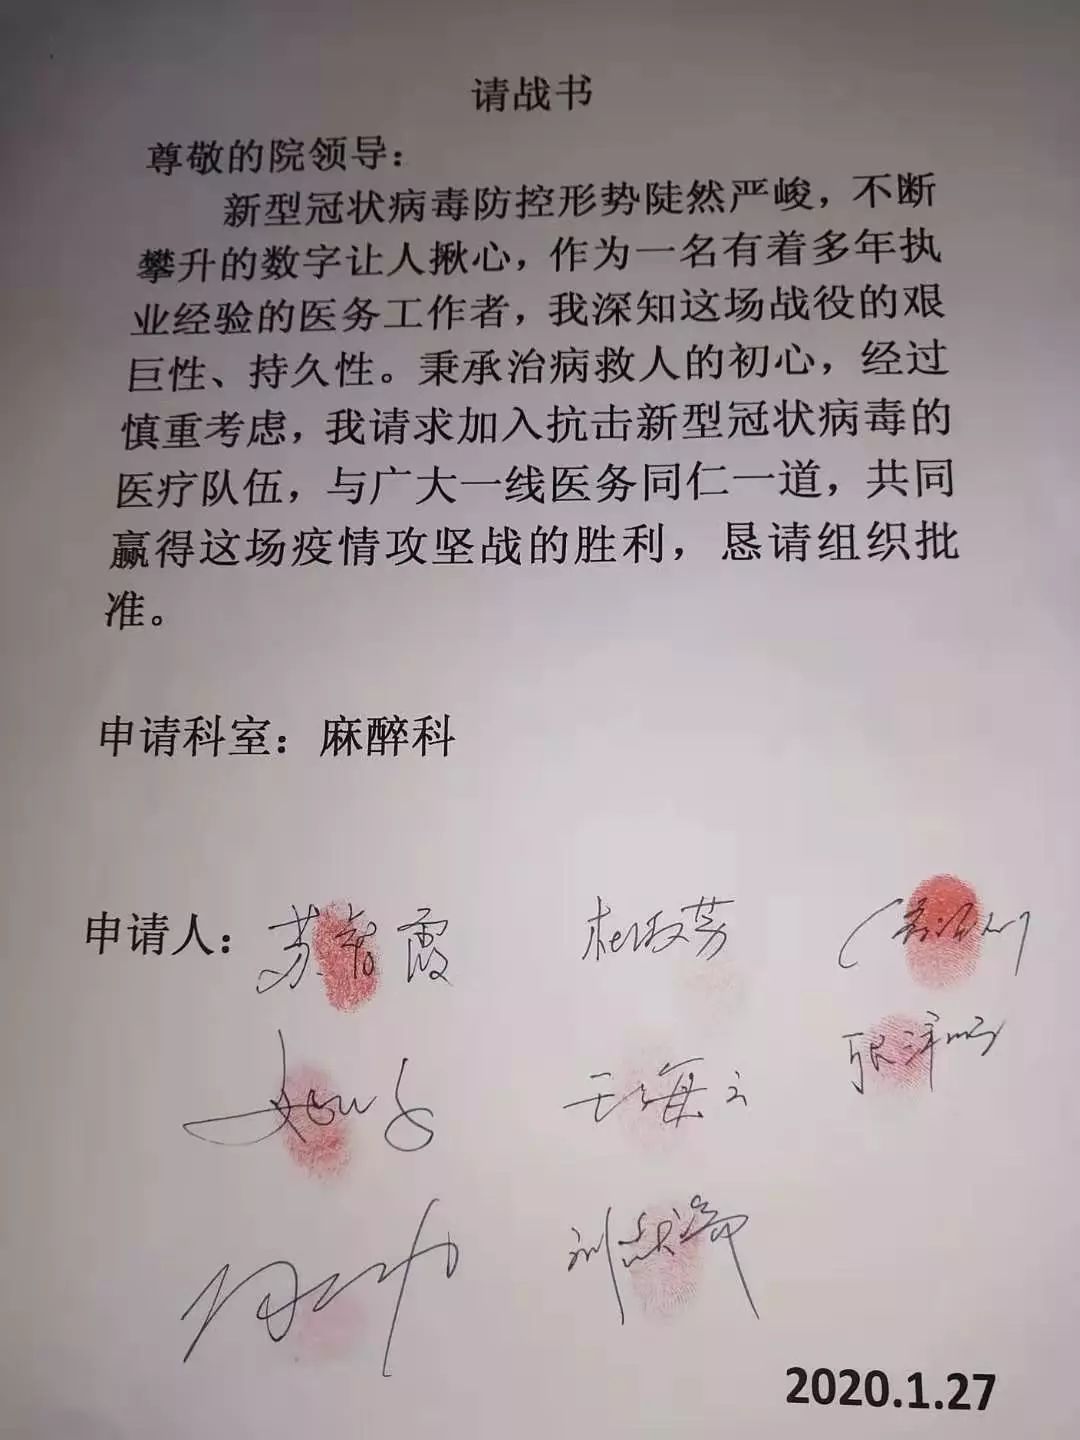 请战书
尊敬的院领导：
新型冠状病毒防控形势陡然严峻，不断
攀升的数字让人揪心，作为一名有着多年执
业经验的医务工作者，我深知这场战役的艰
巨性、持久性。秉承治病救人的初心，经过
慎重考虑，我请求加入抗击新型冠状病毒的
医疗队伍，与广大一线医务同仁一道，共同
赢得这场疫情攻坚战的胜利，恳请组织批
准。
申请科室：麻醉科
申请人：苏 霞 杜淑芳
王海云
2020.1.27